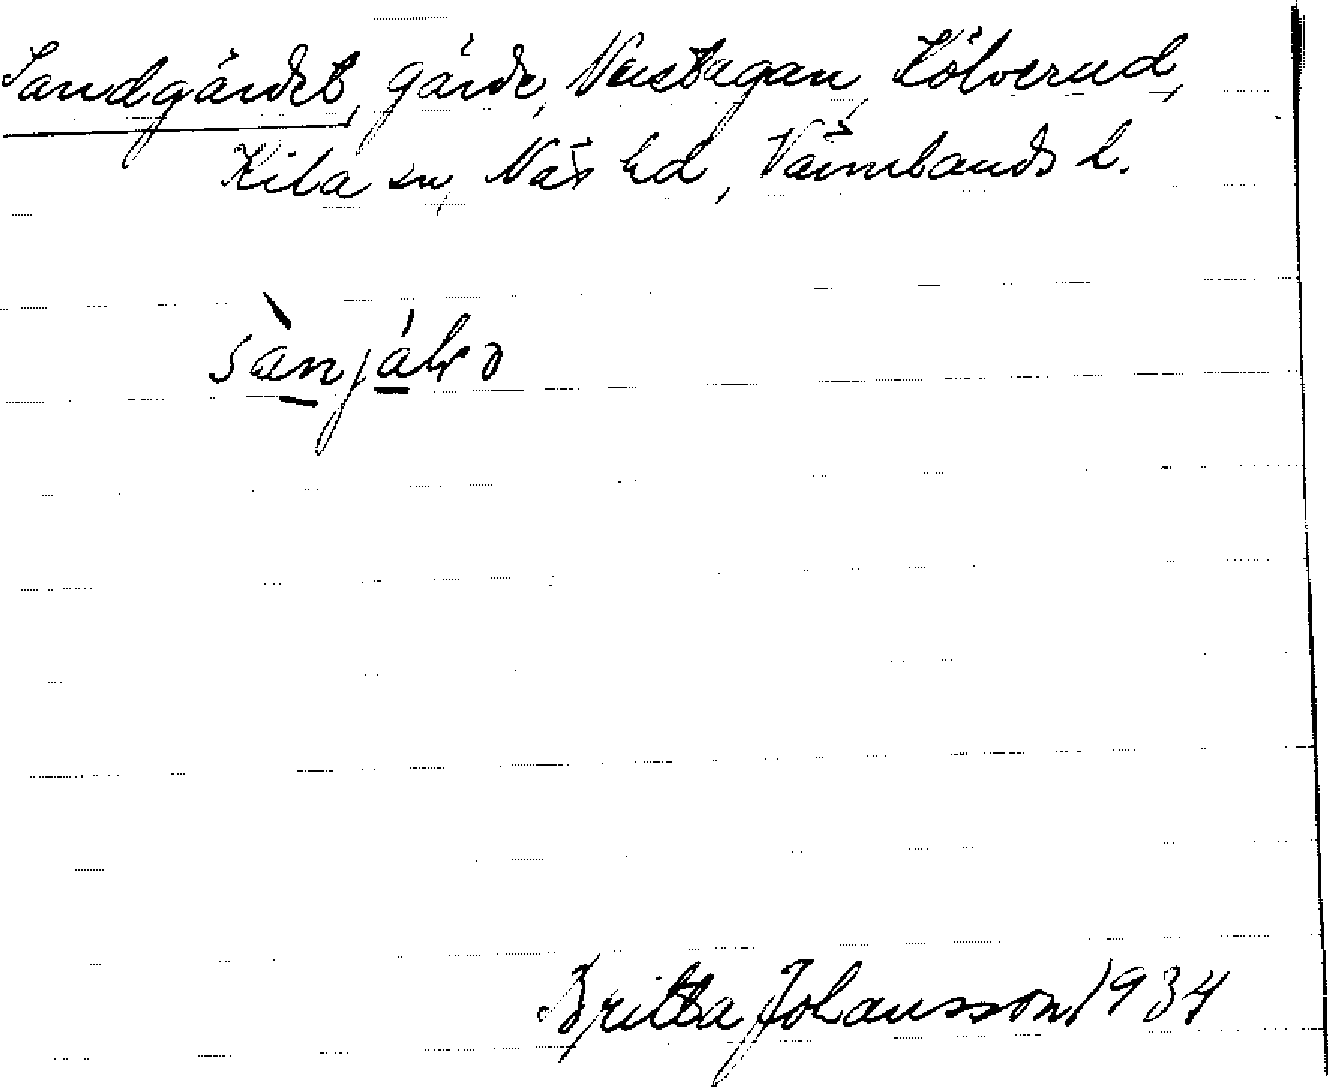 Sandgärdet, gärde, Västagan, Kölverud,
Kila sn, Näs hd, Värmlands l.
sànjálə
Britta Johansson 1934